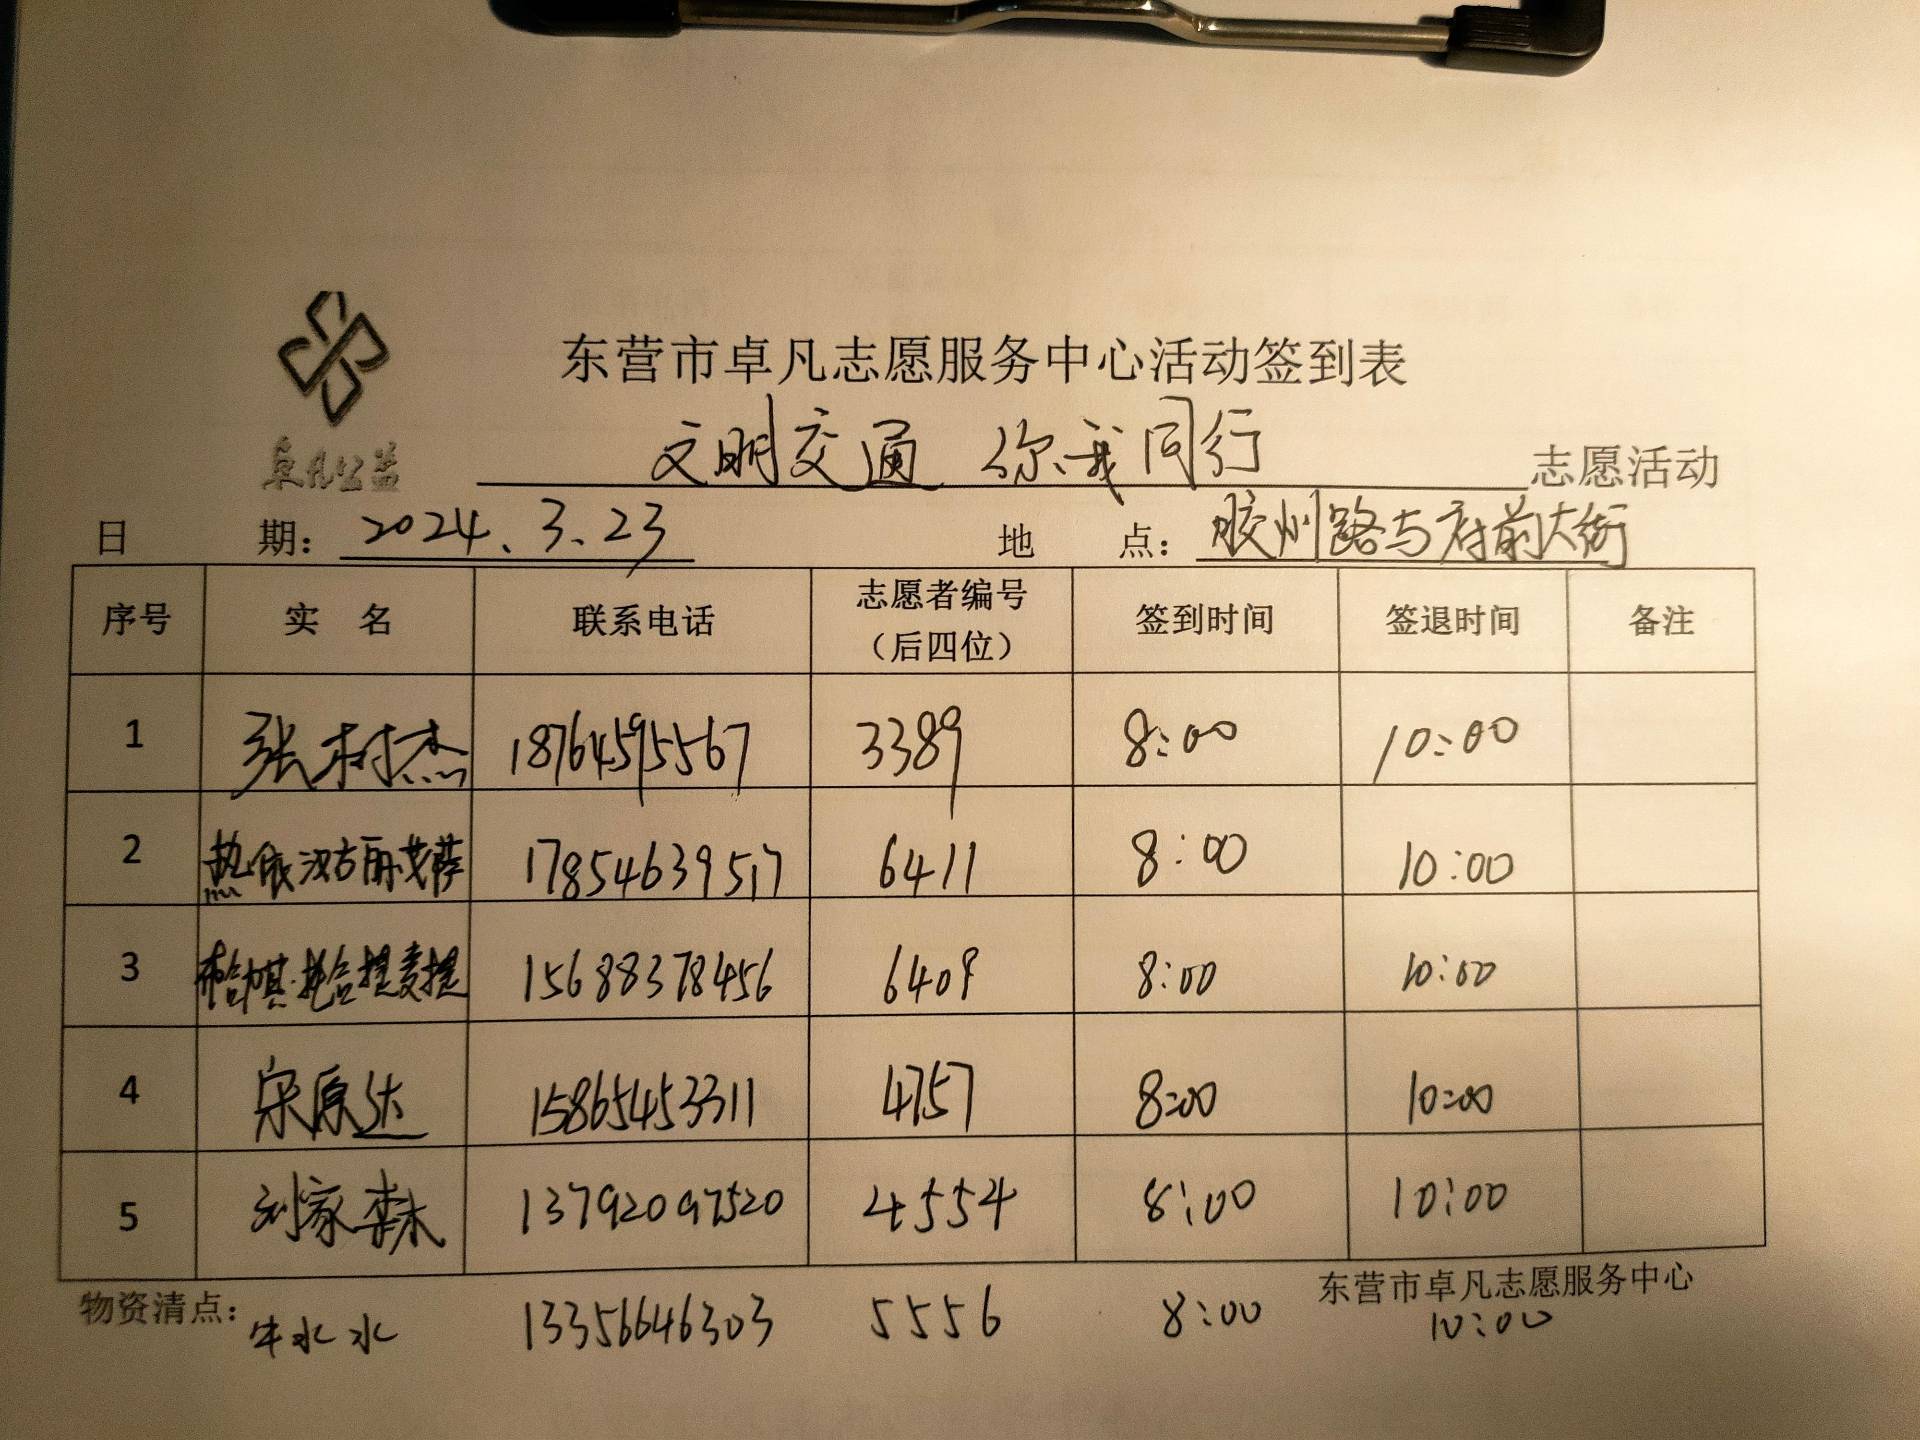 东营市卓凡志愿服务中心活动签到表
卓凡公益 文明交通 你我同行 志愿活动
日 期：2024.3.23 地 点：胶州路与府前大街
序号 实 名 联系电话 志愿者编号（后四位） 签到时间 签退时间 备注
1 张树杰 18764595567 3389 8:00 10:00
2 热依汉古丽·艾萨 17854639517 6411 8:00 10:00
3 托合提麦提 15688378456 6409 8:00 10:00
4 宋原达 15865453311 4757 8:00 10:00
5 刘家森 13792097520 4554 8:00 10:00
物资清点： 东营市卓凡志愿服务中心
牛水水 13356646303 5556 8:00 10:00